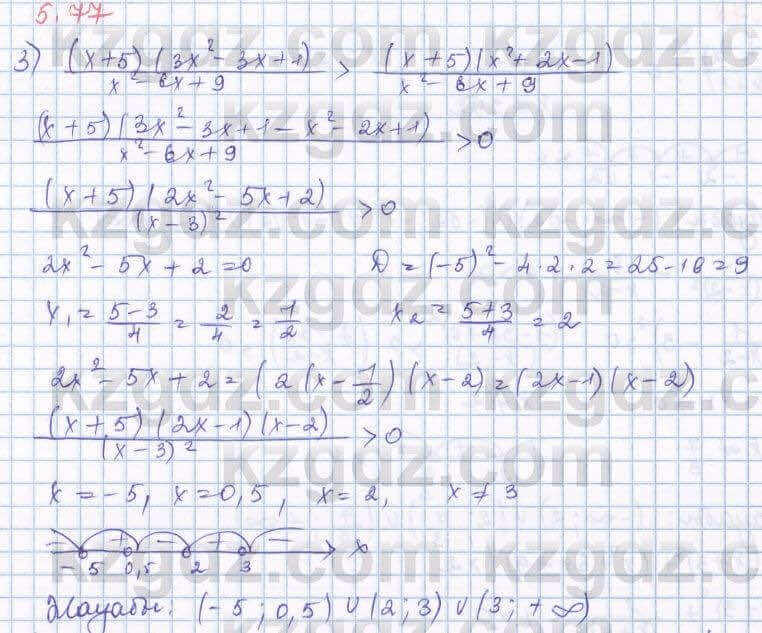 5.77
3) (x+5)(3x²-3x+1)/(x²-6x+9) > (x+5)(x²+2x-1)/(x²-6x+9)
(x+5)(3x²-3x+1-x²-2x+1)/(x²-6x+9) >0
(x+5)(2x²-5x+2)/(x-3)² >0
2x²-5x+2=0 D=(-5)²-4·2·2=25-16=9
x₁=(5-3)/4=2/4=1/2 x₂=(5+3)/4=2
2x²-5x+2=(2(x-1/2)(x-2)=(2x-1)(x-2)
(x+5)(2x-1)(x-2)/(x-3)² >0
x=-5, x=0,5, x=2, x≠3
- + - + - x
-5 0,5 2 3
Жауабы: (-5; 0,5) ∪ (2; 3) ∪ (3; +∞)
kzgdz.com